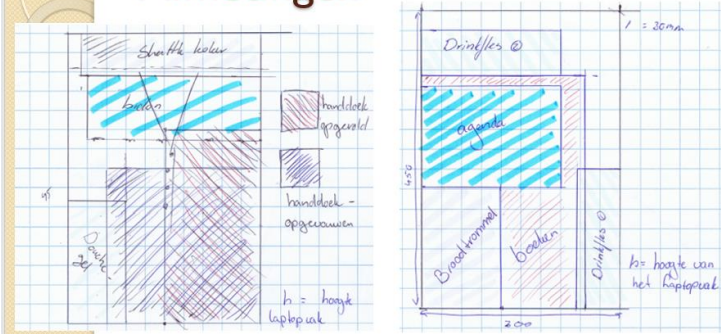 Shuttle koker
boeken
handdoek
opgerold
handdoek -
opgevouwen
Douche
gel
h = hoogte
laptopvak
Drinkfles ②
l = 30mm
agenda
450
Broodtrommel
boeken
Drinkfles ①
h = hoogte van
het laptopvak
300